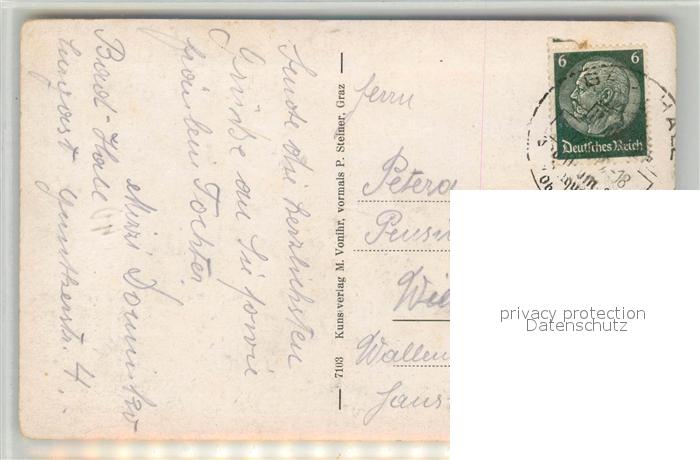 Sende die herzlichsten
Grüße an Sie sowie
Fräulein Tochter
Mizzi
Bad-Hall
7103 Kunstverlag M. Vonihr, vormals P. Steiner, Graz
6 6
Deutsches Reich
HALL
Herrn
Peter
Pensi
Wie
Wallen
Haus
privacy protection
Datenschutz